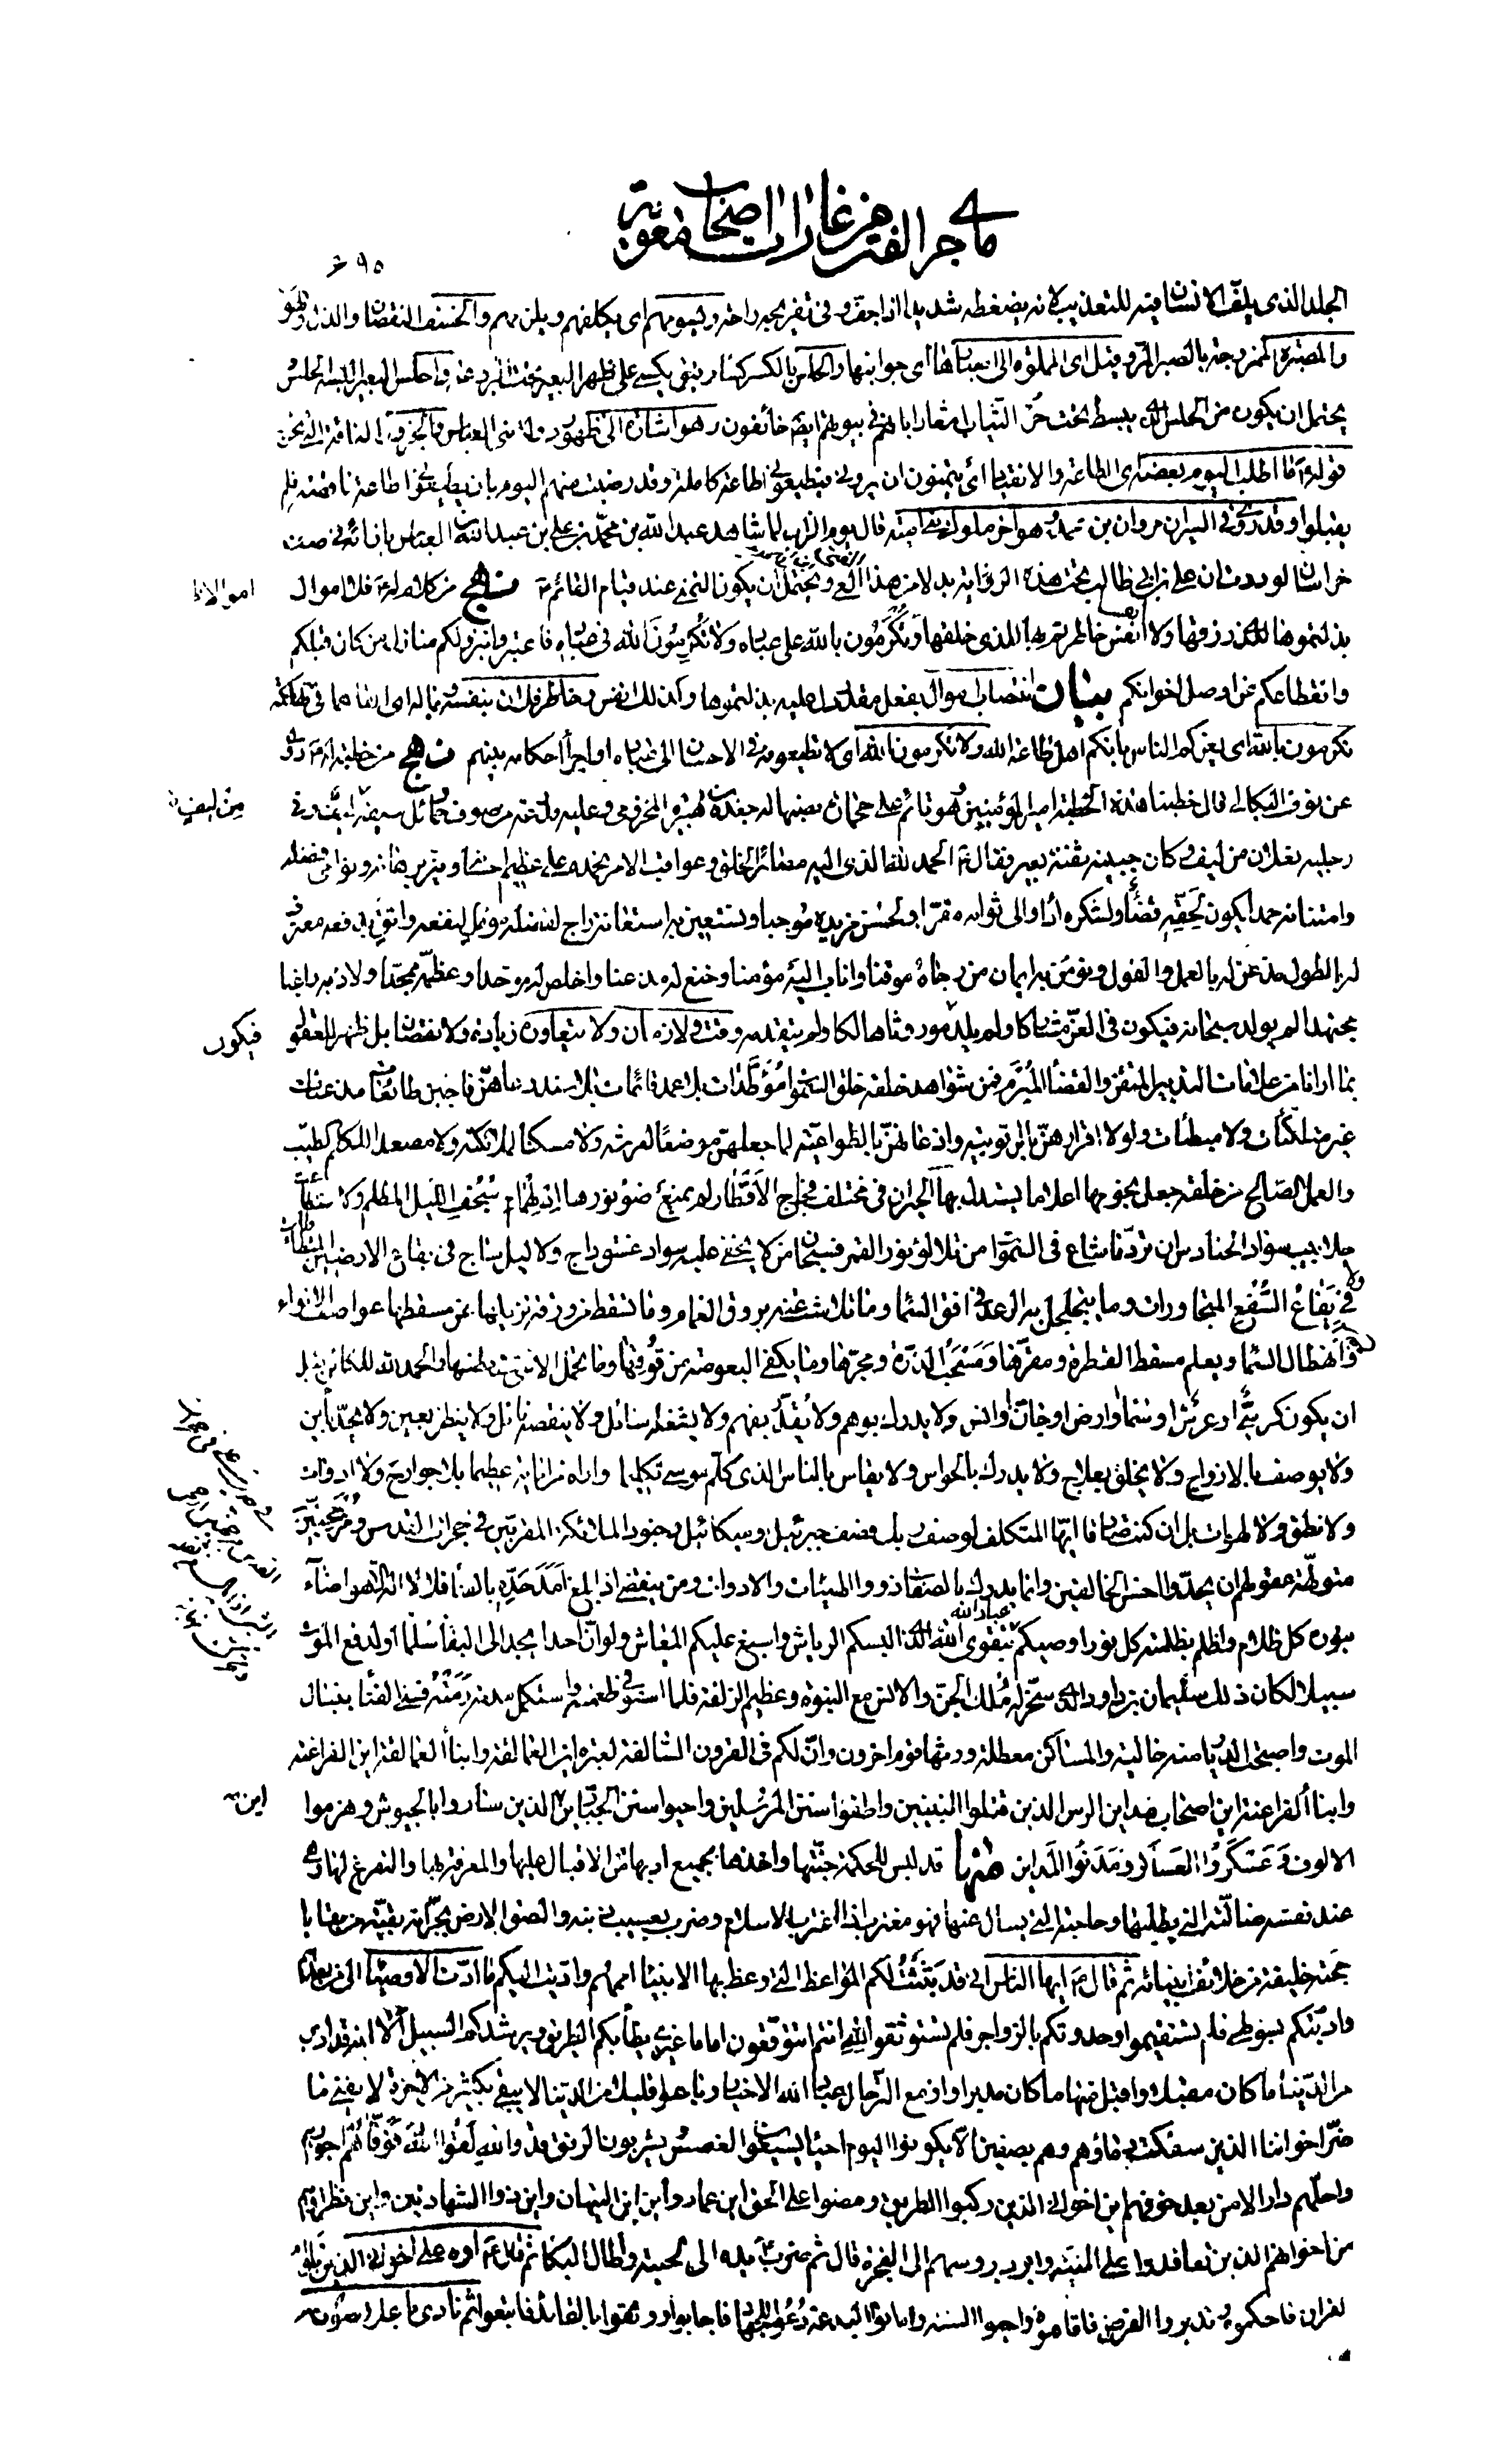 ما جرى الفتن من غارات اصحاب معوية
٦٩٥
الجلد الذي يلف الانسان فيه للتعذيب لانه يضغطه شديدا اذا جف وفي تفريجه راحة ويسومهم اي يكلفهم ويلزمهم والخسف النقصان والذل والهوان
والمصبرة الممزوجة بالصبر المر وقيل اي المملوة الى اصبارها اي جوانبها والحلس بالكسر كساء رقيق يكسى على ظهر البعير تحت البرذعة واحلس البعير البسه الحلس
يحتمل ان يكون من الحلس الذي يبسط تحت حر الثياب اشعارا بانهم في بيوتهم ايضا خائفون وهو اشارة الى ظهور دولة بني العباس والجزور الناقة التي تجزر
قوله ما اطلب اليوم بعضه اي الطاعة والانقياد اي يتمنون ان يروني فيطيعوني اطاعة كاملة وقد رضيت منهم اليوم بان يطيعوني اطاعة ناقصة فلم
يقبلوا وقد روي في السير ان مروان بن محمد وهو اخر ملوك بني امية قال يوم الزاب لما شاهد عبد الله بن محمد بن علي بن عبد الله بن العباس بازائه في صف
خراسان لوددت ان علي بن ابي طالب تحت هذه الراية بدلا من هذا الفتى ويحتمل ان يكون التمني عند قيام القائم ع نهج من كلام له ع فلا اموال
بذلتموها للذي رزقها ولا انفس خاطرتم بها للذي خلقها تكرمون بالله على عباده ولا تكرمون الله في عباده فاعتبروا بنزولكم منازل من كان قبلكم
وانقطاعكم عن اوصل اخوانكم بيان انتصاب الاموال بفعل مقدر دل عليه بذلتموها وكذلك انفس وخاطر فلان بنفسه وماله اي القاهما في الهلكة
تكرمون بالله اي يعزكم الناس بانكم اهل طاعة الله ولا تكرمون الله اي لا تطيعونه في الاحسان الى عباده او اجراء احكامه بينهم نهج من خطبة له ع روي
عن نوف البكالي قال خطبنا هذه الخطبة امير المؤمنين وهو قائم على حجارة نصبها له جعدة بن هبيرة المخزومي وعليه مدرعة من صوف وحمائل سيفه ليف وفي
رجليه نعلان من ليف وكان جبينه ثفنة بعير فقال ع الحمد لله الذي اليه مصائر الخلق وعواقب الامر نحمده على عظيم احسانه ونير برهانه ونوامي فضله
وامتنانه حمدا يكون لحقه قضاء ولشكره اداء والى ثوابه مقربا ولحسن مزيده موجبا ونستعين به استعانة راج لفضله مؤمل لنفعه واثق بدفعه معترف
له بالطول مذعن له بالعمل والقول ونؤمن به ايمان من رجاه موقنا واناب اليه مؤمنا وخنع له مذعنا واخلص له موحدا وعظمه ممجدا ولاذ به راغبا
مجتهدا لم يولد سبحانه فيكون في العز مشاركا ولم يلد فيكون موروثا هالكا ولم يتقدمه وقت ولا زمان ولا يتعاوره زيادة ولا نقصان بل ظهر للعقول
بما ارانا من علامات التدبير المتقن والقضاء المبرم فمن شواهد خلقه خلق السموات موطدات بلا عمد قائمات بلا سند دعاهن فاجبن طائعات مذعنات
غير متلكئات ولا مبطئات ولولا اقرارهن له بالربوبية واذعانهن بالطواعية لما جعلهن موضعا لعرشه ولا مسكنا لملائكته ولا مصعدا للكلم الطيب
والعمل الصالح من خلقه جعل نجومها اعلاما يستدل بها الحيران في مختلف فجاج الاقطار لم يمنع ضوء نورها ادلهمام سجف الليل المظلم ولا استطاعت
جلابيب سواد الحنادس ان ترد ما شاع في السموات من تلالؤ نور القمر فسبحان من لا يخفى عليه سواد غسق داج ولا ليل ساج في بقاع الارضين المتطاطئات
ولا في يفاع السفع المتجاورات وما يتجلجل به الرعد في افق السماء وما تلاشت عنه بروق الغمام وما تسقط من ورقة تزيلها عن مسقطها عواصف الانواء
وانهطال السماء ويعلم مسقط القطرة ومقرها ومسحب الذرة ومجرها وما يكفي البعوضة من قوتها وما تحمل الانثى في بطنها والحمد لله الكائن قبل
ان يكون كرسي او عرش او سماء او ارض او جان او انس ولا يدرك بوهم ولا يقدر بفهم ولا يشغله سائل ولا ينقصه نائل ولا ينظر بعين ولا يحد باين
ولا يوصف بالازواج ولا يخلق بعلاج ولا يدرك بالحواس ولا يقاس بالناس الذي كلم موسى تكليما واراه من اياته عظيما بلا جوارح ولا ادوات
ولا نطق ولا لهوات بل ان كنت صادقا ايها المتكلف لوصف ربك فصف جبرئيل وميكائيل وجنود الملائكة المقربين في حجرات القدس مرجحنين
متولهة عقولهم ان يحدوا احسن الخالقين وانما يدرك بالصفات ذوو الهيئات والادوات ومن ينقضي اذا بلغ امد حده بالفناء فلا اله الا هو اضاء
بنوره كل ظلام واظلم بظلمته كل نور اوصيكم عباد الله بتقوى الله الذي البسكم الرياش واسبغ عليكم المعاش ولو ان احدا يجد الى البقاء سلما او لدفع الموت
سبيلا لكان ذلك سليمان بن داود الذي سخر له ملك الجن والانس مع النبوة وعظيم الزلفة فلما استوفى طعمته واستكمل مدته رمته قسي الفناء بنبال
الموت واصبحت الديار منه خالية والمساكن معطلة ورثها قوم اخرون وان لكم في القرون السالفة لعبرة اين العمالقة وابناء العمالقة اين الفراعنة
وابناء الفراعنة اين اصحاب مداين الرس الذين قتلوا النبيين واطفوا سنن المرسلين واحيوا سنن الجبارين الذين ساروا بالجيوش وهزموا
الالوف وعسكروا العساكر ومدنوا المداين منها قد لبس للحكمة جنتها واخذها بجميع ادبها من الاقبال عليها والمعرفة بها والتفرغ لها وهي
عند نفسه ضالته التي يطلبها وحاجته التي يسال عنها فهو مغترب اذا اغترب الاسلام وضرب بعسيب ذنبه والصق الارض بجرانه بقية من بقايا
حجته خليفة من خلائف انبيائه ثم قال ع ايها الناس اني قد بثثت لكم المواعظ التي وعظ بها الانبياء اممهم واديت اليكم ما ادت الاوصياء الى من بعدهم
وادبتكم بسوطي فلم تستقيموا وحدوتكم بالزواجر فلم تستوثقوا لله انتم اتتوقعون اماما غيري يطأ بكم الطريق ويرشدكم السبيل الا انه قد ادبر
من الدنيا ما كان مقبلا واقبل منها ما كان مدبرا وازمع الترحال عباد الله الاخيار وباعوا قليلا من الدنيا لا يبقى بكثير من الاخرة لا يفنى ما
ضر اخواننا الذين سفكت دماؤهم وهم بصفين الا يكونوا اليوم احياء يسيغون الغصص يشربون الرنق قد والله لقوا الله فوفاهم اجورهم
واحلهم دار الامن بعد خوفهم اين اخواني الذين ركبوا الطريق ومضوا على الحق اين عمار واين ابن التيهان واين ذو الشهادتين واين نظراؤهم
من اخوانهم الذين تعاقدوا على المنية وابرد برؤسهم الى الفجرة قال ثم ضرب ع يده الى لحيته واطال البكاء ثم قال ع اوه على اخواني الذين تلوا
القران فاحكموه وتدبروا الفرض فاقاموه واحيوا السنة واماتوا البدعة دعوا للجهاد فاجابوا ووثقوا بالقائد فاتبعوا ثم نادى باعلى صوته
امو الا ظ
من ليف
فيكون
اين